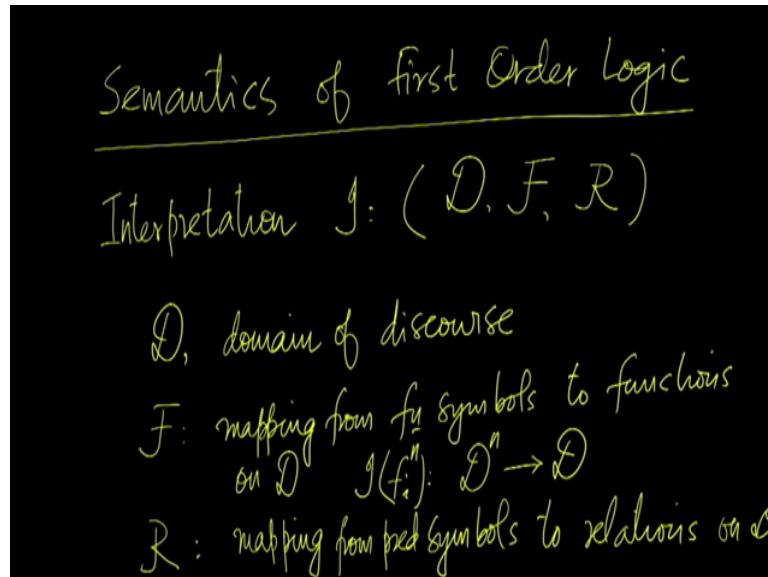 Semantics of first Order Logic
Interpretation I: ( D, F, R )
D, domain of discourse
F: mapping from fn symbols to functions
on D I(fᵢⁿ): Dⁿ → D
R: mapping from pred symbols to relations on D